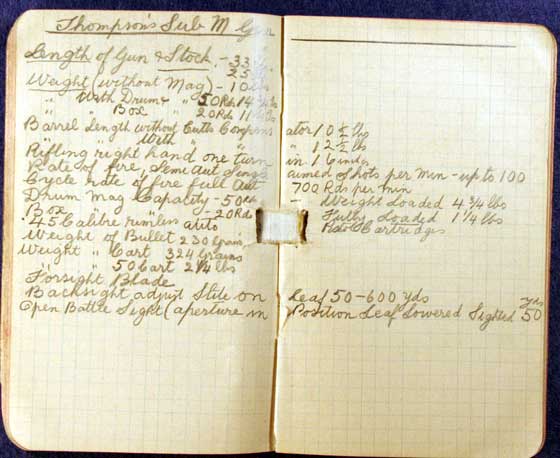 Thompson's Sub M Gun
Length of Gun & Stock - 33
25
Weight (without Mag) - 10 lbs
" With Drum " 50 Rds 14
" " Box " 20 Rds 11 lbs
Barrel Length without Cutts Compensator 10½ lbs
" " With " " 12½ lbs
Rifling right hand one turn in 16 inches
Rate of fire, Semi Aut Single aimed Shots per min - up to 100
Cycle rate of fire full Aut 700 Rds per min
Drum Mag Capacity - 50 Rds - Weight Loaded 4¾ lbs
Box " " - 20 Rds Fully Loaded 1¼ lbs
.45 Calibre rimless auto Cartridges
Weight of Bullet 230 Grains
Weight " Cart 324 Grains
" " 50 Cart 2¼ lbs
Forsight Blade
Backsight adjust Slide on Leaf 50-600 yds
Open Battle Sight (aperture in Position Leaf Lowered Sighted 50 yds